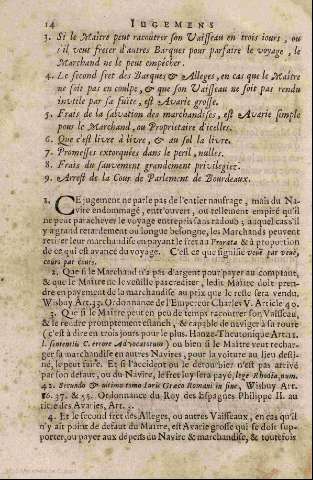 14 IUGEMENS
3. Si le Maître peut racoutrer son Vaisseau en trois iours, ou
s'il veut freter d'autres Barques pour parfaire le voyage, le
Marchand ne le peut empécher.
4. Le second fret des Barques & Alleges, en cas que le Maître
ne soit pas en coulpe, & que son Vaisseau ne soit pas rendu
inutile par sa fuite, est Avarie grosse.
5. Frais de la salvation des marchandises, est Avarie simple
pour le Marchand, ou Proprietaire d'icelles.
6. Que c'est livre à livre, & au sol la livre.
7. Promesses extorquées dans le peril, nulles.
8. Frais du sauvement grandement privilegiez.
9. Arrest de la Cour de Parlement de Bourdeaux.
1. CE jugement ne parle pas de l'entier naufrage, mais du Na-
vire endommagé, entr'ouvert, ou tellement empiré qu'il
ne peut parachever le voyage entrepris sans radoub; auquel cas s'il
y a grand retardement ou longue besongne, les Marchands peuvent
retirer leur marchandise en payant le fret au Prorata & à proportion
de ce qui est avancé du voyage. C'est ce que signifie veuë par veuë,
cours par cours.
2. Que si le Marchand n'a pas d'argent pour payer au comptant,
& que le Maître ne le vueille pas crediter, ledit Maître doit pren-
dre en payement de la marchandise au prix que le reste sera vendu,
Wisbuy Art. 35. Ordonnance de l'Empereur Charles V. Article 40.
3. Que si le Maître peut en peu de temps racoutrer son Vaisseau,
& le rendre promptement étanch, & capable de naviger à sa route
(c'est à dire en trois jours pour le plus. Hanze-Theutonique Art. 22.
l. sententiis C. errore Advocatorum) ou bien si le Maître veut rechar-
ger sa marchandise en autres Navires, pour la voiture au lieu desti-
né, le peut faire. Et si l'accident ou le desourbier n'est pas arrivé
par son defaut, ou du Navire, le fret luy sera payé, lege Rhodia, num.
42. Secundo & ultimo tomo Juris Graeco Romani in fine, Wisbuy Art.
16. 37. & 55. Ordonnance du Roy des Espagnes Philippe II. au
titre des Avaries, Art. 3.
4. Et le second fret des Alleges, ou autres Vaisseaux, en cas qu'il
n'y ait point de defaut du Maître, est Avarie grosse qui se doit sup-
porter, ou payer aux depens du Navire & marchandise, & toutefois